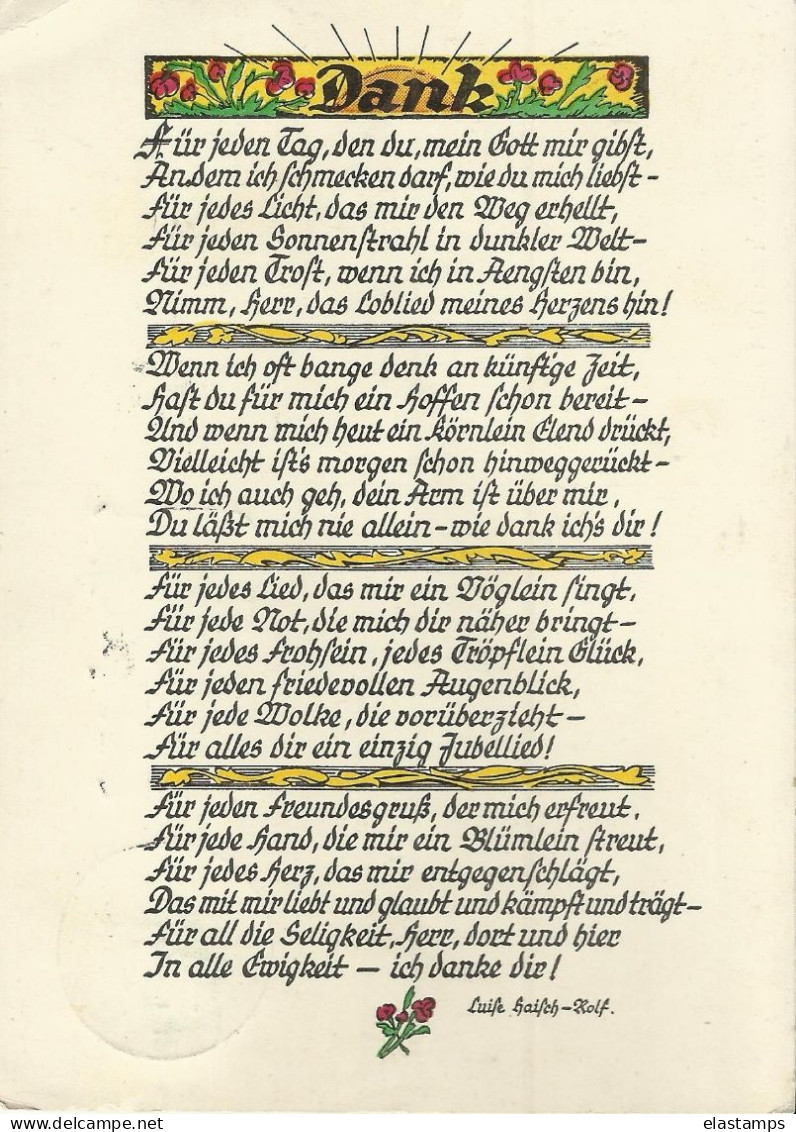 Dank
Für jeden Tag, den du, mein Gott mir gibst,
An dem ich schmecken darf, wie du mich liebst –
Für jedes Licht, das mir den Weg erhellt,
Für jeden Sonnenstrahl in dunkler Welt –
Für jeden Trost, wenn ich in Aengsten bin,
Nimm, Herr, das Loblied meines Herzens hin!
Wenn ich oft bange denk an künft'ge Zeit,
Hast du für mich ein Hoffen schon bereit –
Und wenn mich heut ein Körnlein Elend drückt,
Vielleicht ist's morgen schon hinweggerückt –
Wo ich auch geh, dein Arm ist über mir,
Du läßt mich nie allein – wie dank ich's dir!
Für jedes Lied, das mir ein Vöglein singt,
Für jede Not, die mich dir näher bringt –
Für jedes Frohsein, jedes Tröpflein Glück,
Für jeden friedevollen Augenblick,
Für jede Wolke, die vorüberzieht –
Für alles dir ein einzig Jubellied!
Für jeden Freundesgruß, der mich erfreut,
Für jede Hand, die mir ein Blümlein streut,
Für jedes Herz, das mir entgegenschlägt,
Das mit mir liebt und glaubt und kämpft und trägt –
Für all die Seligkeit, Herr, dort und hier
In alle Ewigkeit – ich danke dir!
Luise Haisch-Rolf.
elastamps